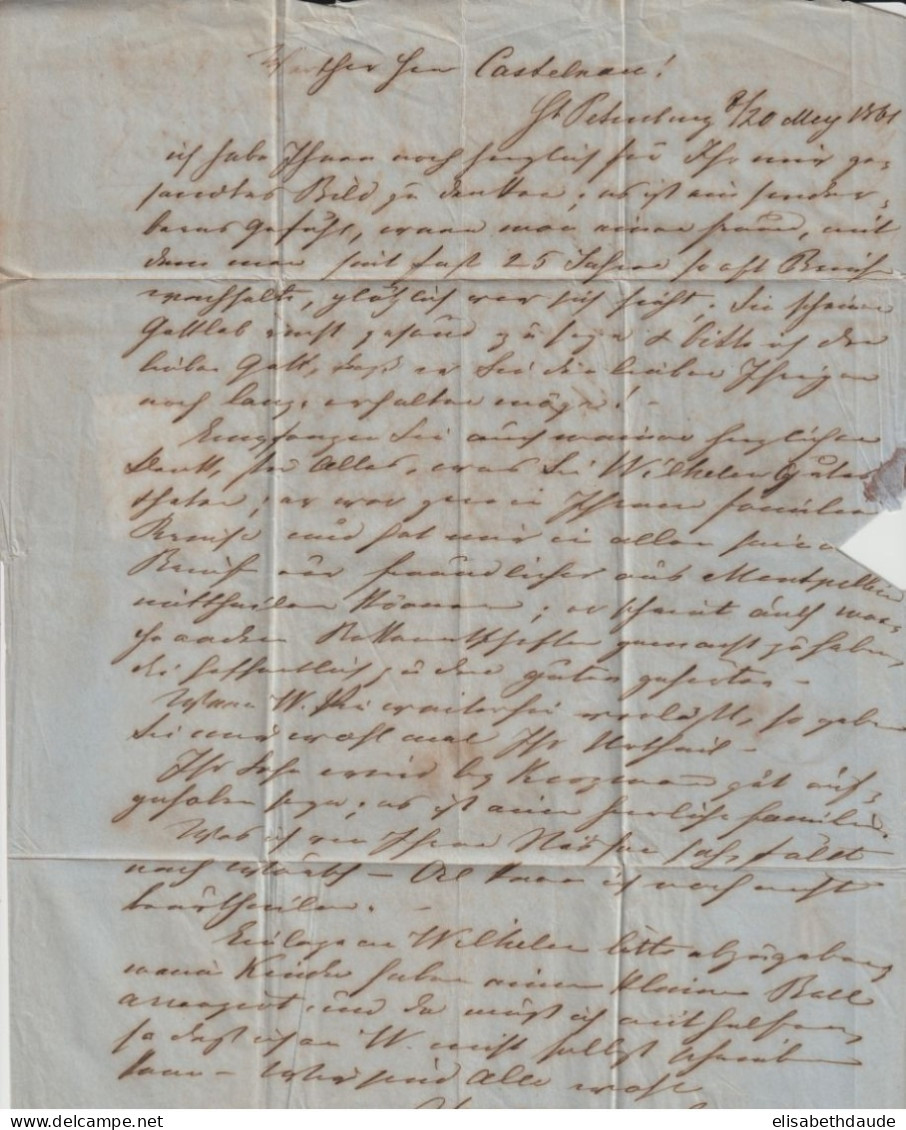 Werther Herr Castelnau!
St Petersburg 8/20 Mey 1861
ich habe Ihnen noch herzlich für Ihr mir ge-
sandtes Bild zu danken; es ist ein sonder-
bares Gefühl, wenn man einen Freund, mit
dem man seit fast 25 Jahren so oft Briefe
wechselte, plötzlich vor sich sieht; Sie scheinen
Gottlob recht gesund zu seyn & bitte ich den
lieben Gott, daß er Sie den lieben Ihrigen
noch lange erhalten möge! -
Empfangen Sie auch meinen herzlichen
Dank, für Alles, was Sie Wilhelm Gutes
thaten; er war gern in Ihrem Familien
Kreise und hat mir in allen seinen
Briefen nur freundliches aus Montpellier
mittheilen können; er scheint auch
Bekanntschaften gemacht zu haben,
die hoffentlich zu den guten gehörten -
Wenn W. Sie verläßt, so geben
Sie mir wohl mal Ihr Urtheil -
Ihr Sohn wird bey gut auf-
gehoben seyn; es ist eine herrliche Familie.
Was ich von Ihren sah, fällt
noch - Oel kann ich noch nicht
beurtheilen. -
Einlage an Wilhelm bitte abzugeben,
meine Kinder haben einen kleinen Ball
arrangirt und da muß ich mithelfen,
so daß ich an W. nicht selbst schreiben
kann - Wir sind Alle wohl
elisabethdaude